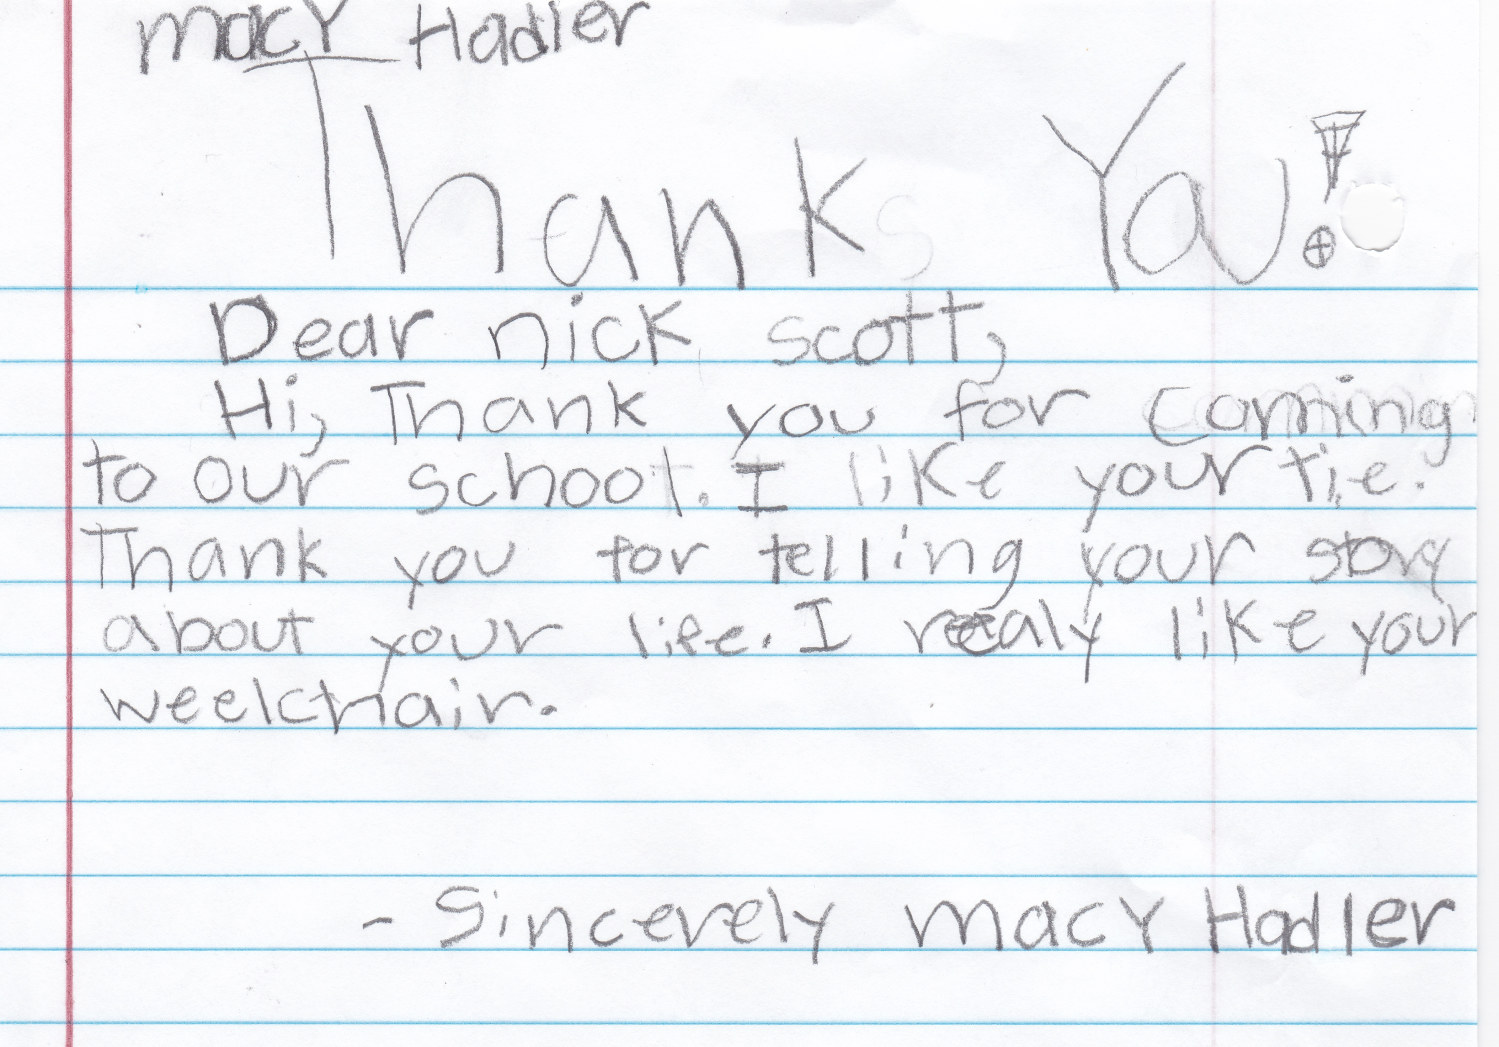 macY Hadler
Thank You!
Dear nick scott,
Hi, Thank you for comming
to our school. I like your tie.
Thank you for telling your story
about your life. I realy like your
weelchair.
- Sincerely macY Hadler